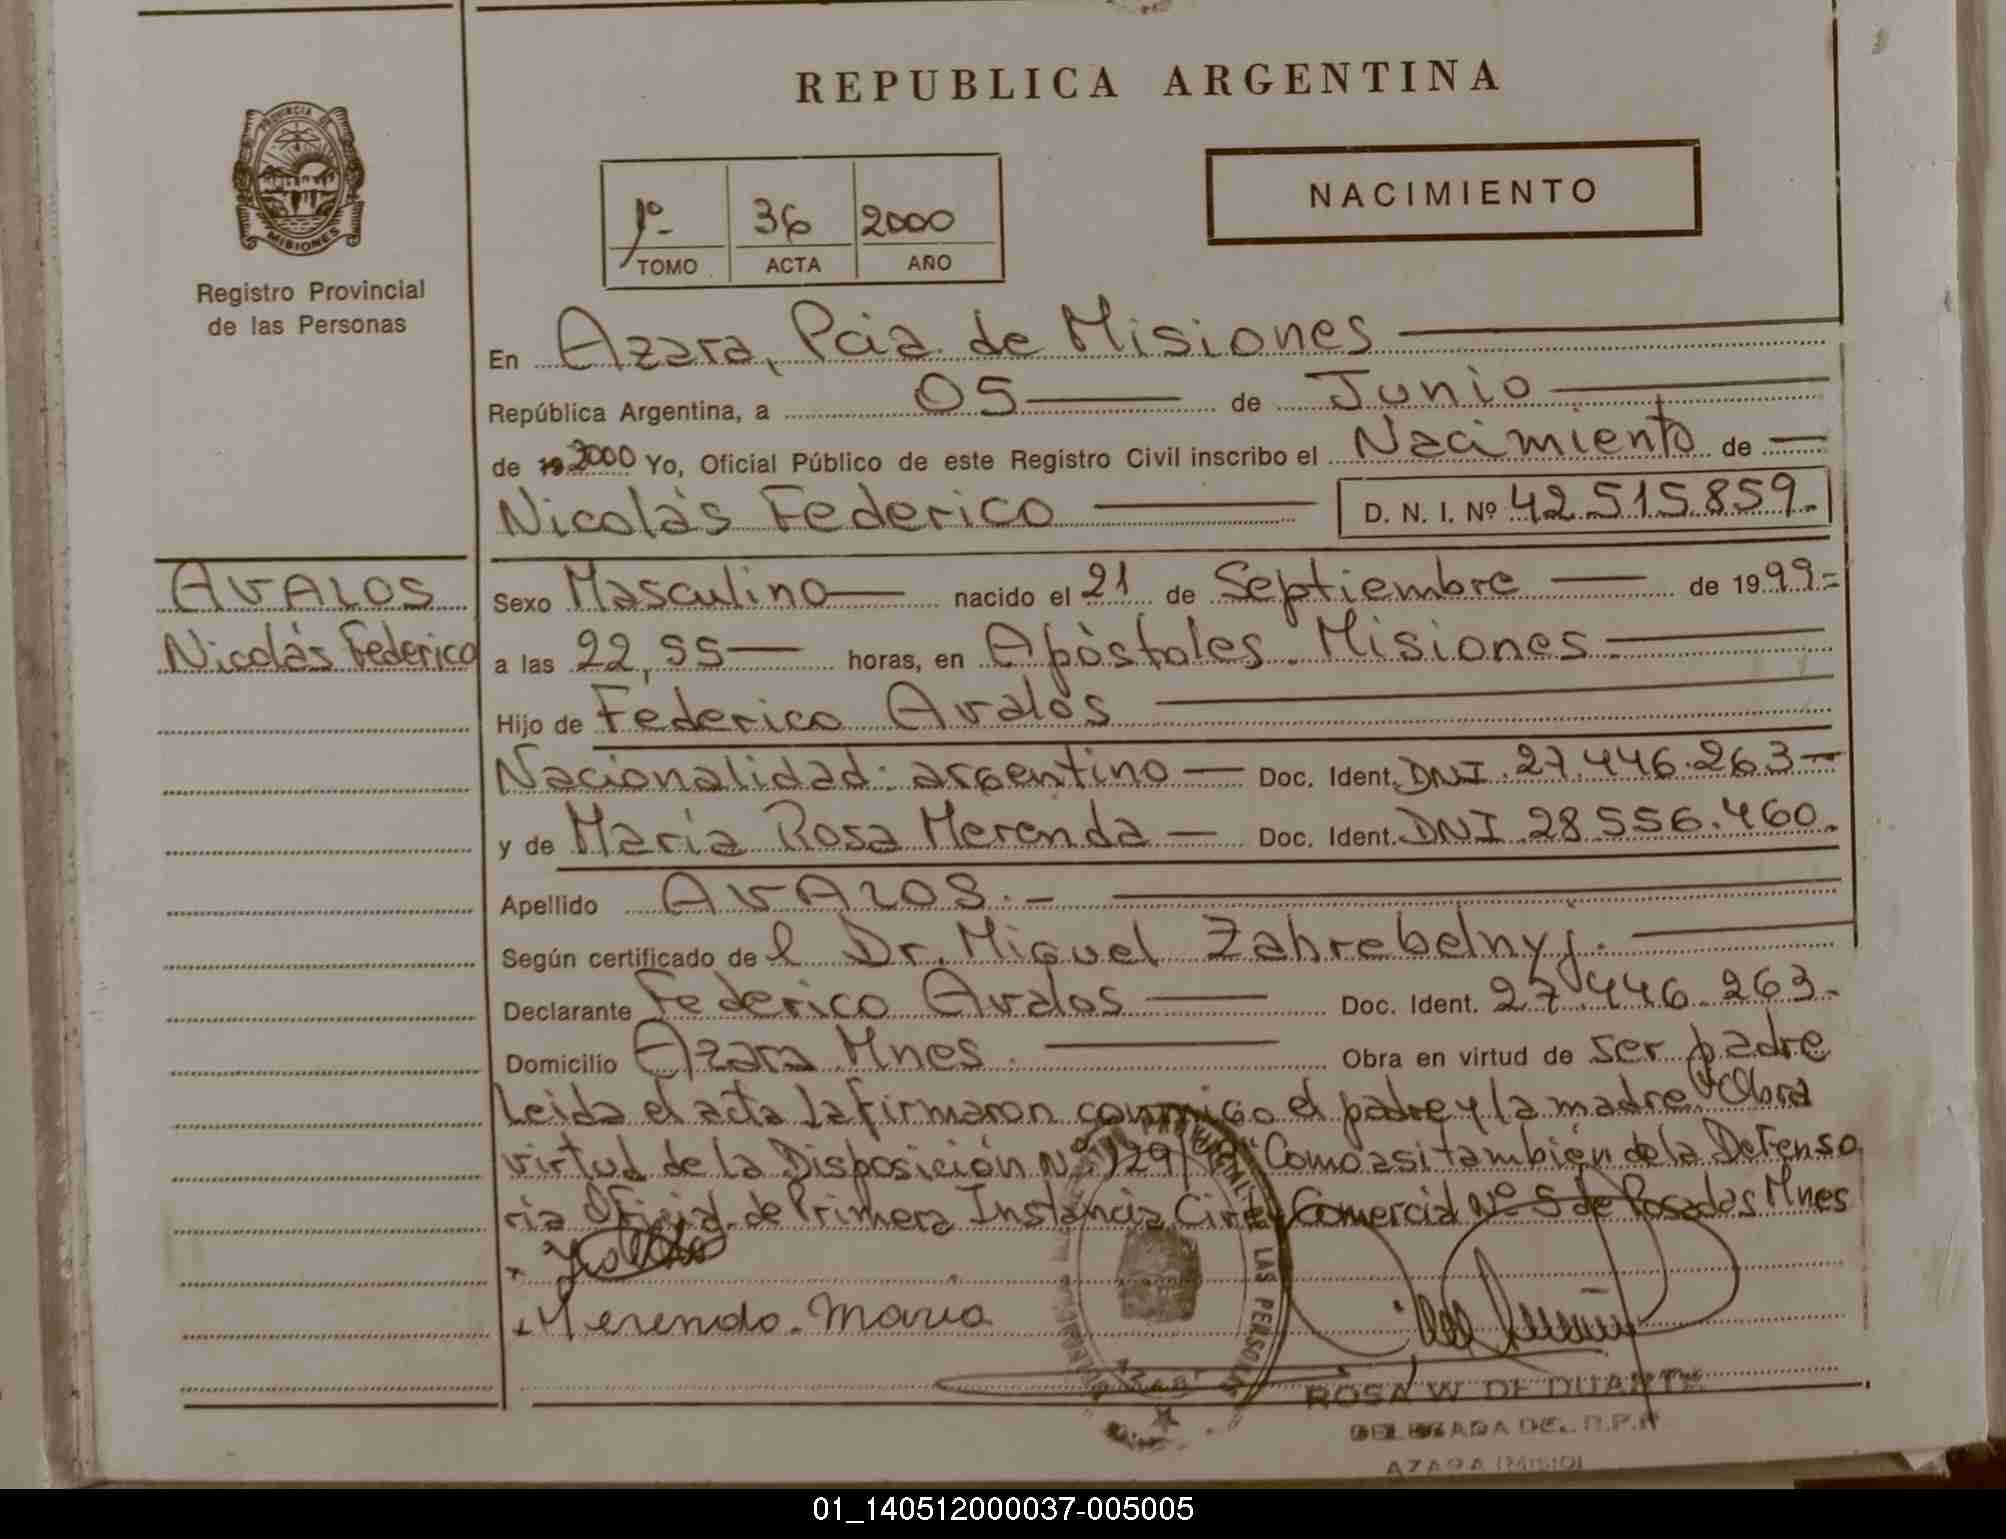 REPUBLICA ARGENTINA
PROVINCIA DE
MISIONES
Registro Provincial
de las Personas
NACIMIENTO
1º- 36 2000
TOMO ACTA AÑO
En Azara, Pcia de Misiones
República Argentina, a 05 de Junio
de 19 2000 Yo, Oficial Público de este Registro Civil inscribo el Nacimiento de
Nicolás Federico D. N. I. Nº 42.515.859.-
AVALOS
Nicolás Federico
Sexo Masculino nacido el 21 de Septiembre de 1999.=
a las 22,55 horas, en Apóstoles. Misiones
Hijo de Federico Avalos
Nacionalidad: argentino Doc. Ident. DNI. 27.446.263
y de María Rosa Merenda Doc. Ident. DNI 28.556.460.
Apellido AVALOS.-
Según certificado del Dr. Miguel Zahrebelnyj.
Declarante Federico Avalos Doc. Ident. 27.446.263.
Domicilio Azara Mnes. Obra en virtud de ser padre
Leida el acta la firmaron conmigo el padre y la madre. Obra
virtud de la Disposición Nº 129/ Como asi también de la Defenso
ria Oficial de Primera Instancia Civil y Comercial Nº 5 de Posadas Mnes
Merenda. Maria
LAS PERSONAS
ROSA W. DE DUARTE
DELEGADA DEL R.P.P.
AZARA (MISIO)
01_140512000037-005005